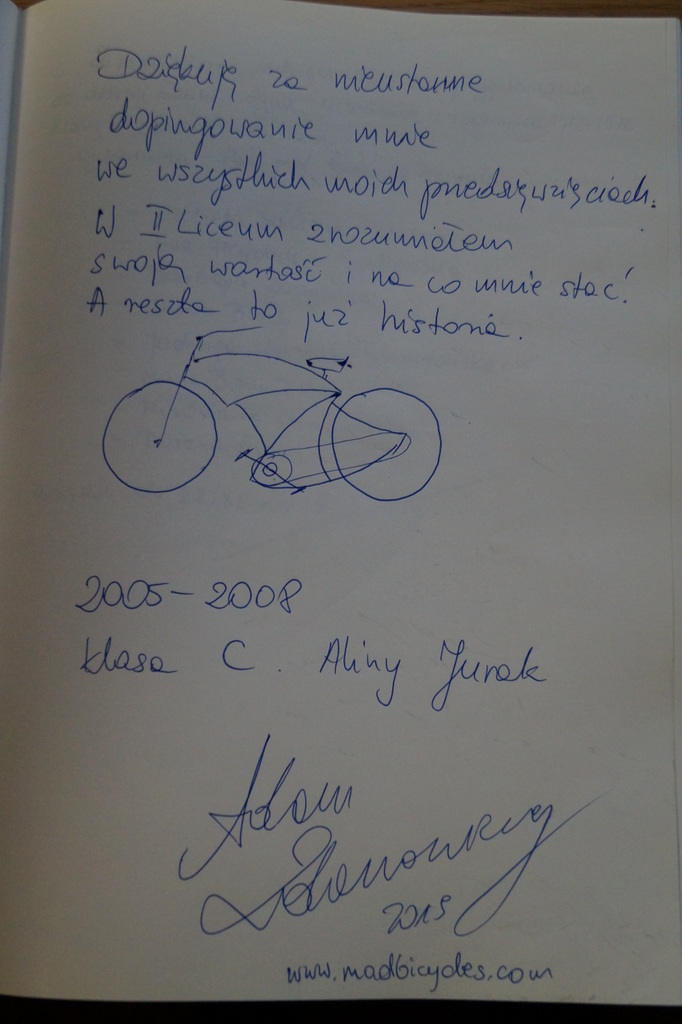 Dziękuję za nieustanne
dopingowanie mnie
we wszystkich moich przedsięwzięciach.
W II Liceum zrozumiałem
swoją wartość i na co mnie stać!
A reszta to już historia.
2005 - 2008
klasa C. Aliny Jurak
Adam
2015
www.madbicycles.com